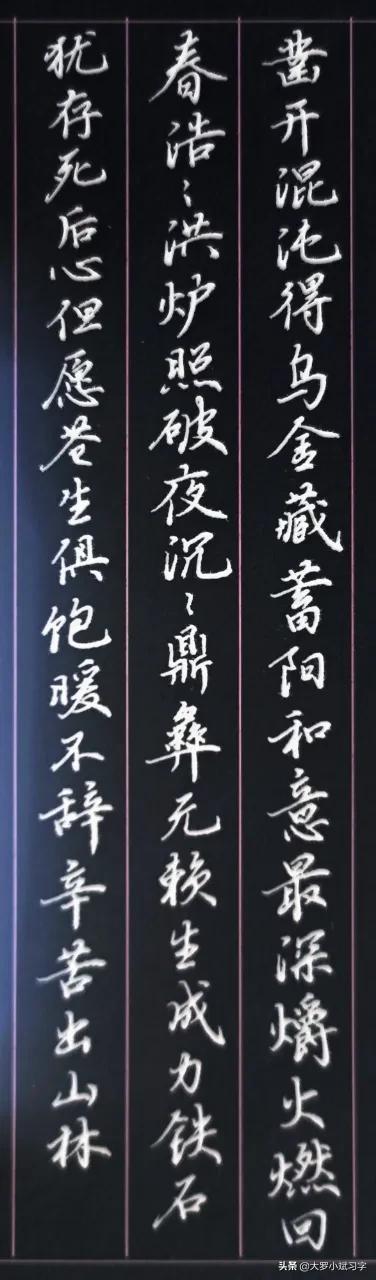 凿开混沌得乌金藏蓄阳和意最深爝火燃回
春浩〻洪炉照破夜沉〻鼎彝元赖生成力铁石
犹存死后心但愿苍生俱饱暖不辞辛苦出山林
头条 @大罗小斌习字